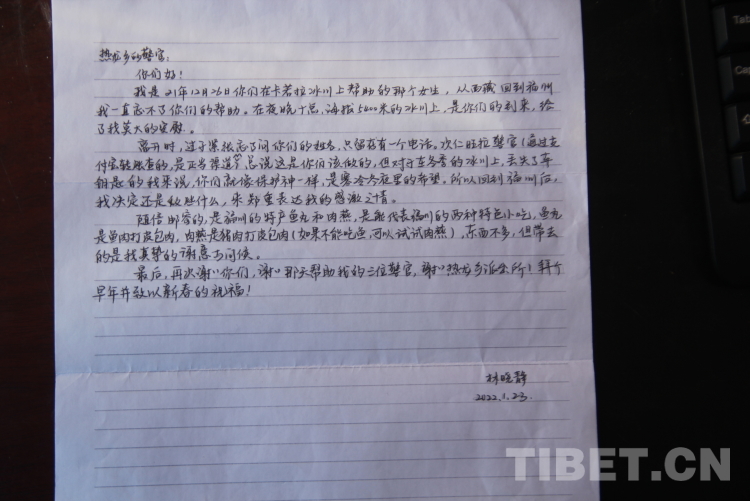 热龙乡的警官：
你们好！
我是21年12月26日你们在卡若拉冰川上帮助的那个女生，从西藏回到福州
我一直忘不了你们的帮助。在夜晚十点，海拔5400米的冰川上，是你们的到来，给
了我莫大的安慰。
离开时，过于紧张忘了问你们的姓名，只留存有一个电话。次仁旺拉警官（通过支
付宝转账查的，是正当渠道）总说这是你们该做的，但对于在冬季的冰川上，丢失了车
钥匙的我来说，你们就像保护神一样，是寒冷冬夜里的希望。所以回到福州后，
我决定还是做些什么，来郑重表达我的感激之情。
随信邮寄的，是福州的特产鱼丸和肉燕，是能代表福州的两种特色小吃，鱼丸
是鱼肉打皮包肉，肉燕是猪肉打皮包肉（如果不能吃鱼，可以试试肉燕），东西不多，但带去
的是我真挚的谢意与问候。
最后，再次谢谢你们，谢谢那天帮助我的三位警官，谢谢热龙乡派出所！拜个
早年并致以新春的祝福！
林晓静
2022.1.23.
TIBET.CN
Tab
Cap